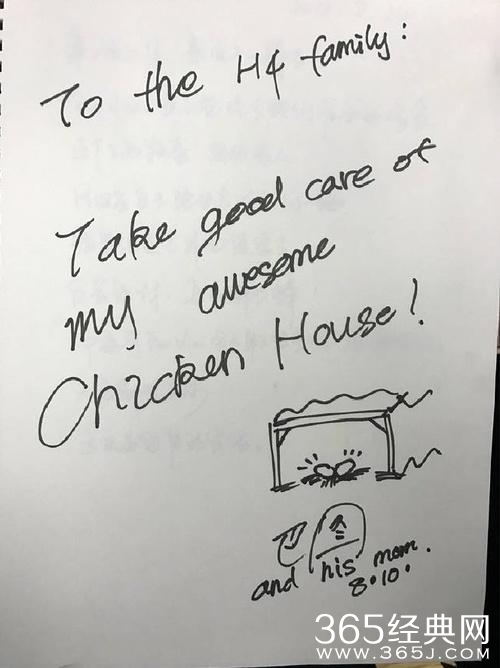 To the H4 family:
Take good care of
my awesome
Chicken House!
and his mom.
8.10.
365经典网
WWW.365J.COM